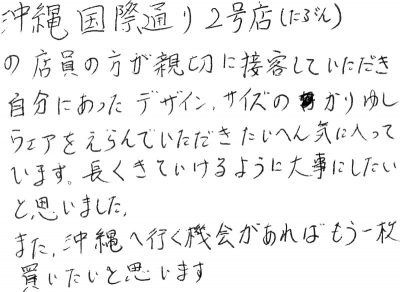 沖縄国際通り2号店(たぶん)
の店員の方が親切に接客していただき
自分にあったデザイン、サイズのかりゆし
ウェアをえらんでいただきたいへん気に入って
います。長くきていけるように大事にしたい
と思いました。
また、沖縄へ行く機会があればもう一枚
買いたいと思います